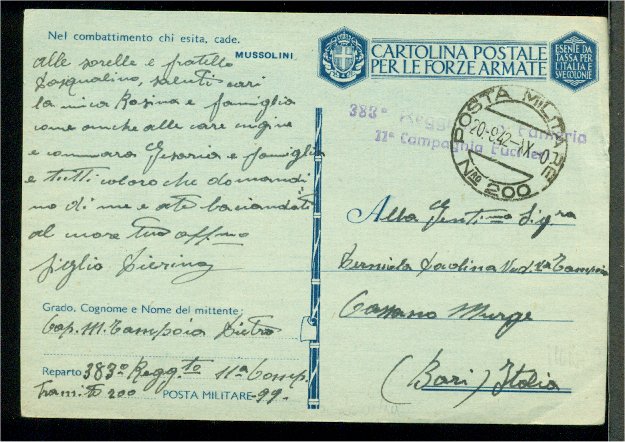 Nel combattimento chi esita, cade.
MUSSOLINI
alle sorelle e fratello
Pasqualino, saluti cari
la mica Rosina e famiglia
come anche alle care cugine
e commara Cesaria e famiglia
e tutti coloro che domandi
no di me e a te baciandoti
al more tuo affmo
figlio Pierino
Grado, Cognome e Nome del mittente:
Cap. M. Tampoia Pietro
Reparto 383° Regg.to 11a Comp.
Tramite 200 POSTA MILITARE -99-
CARTOLINA POSTALE
PER LE FORZE ARMATE
ESENTE DA
TASSA PER
L'ITALIA E
SVE COLONIE
383° Regg Fanteria
11° Compagnia Fucilieri
POSTA MILITARE
20-9 42-XX
N° 200
Alla Gent.ma Sig.ra
Paolina Ved. Tampoia
Cassano Murge
(Bari) Italia